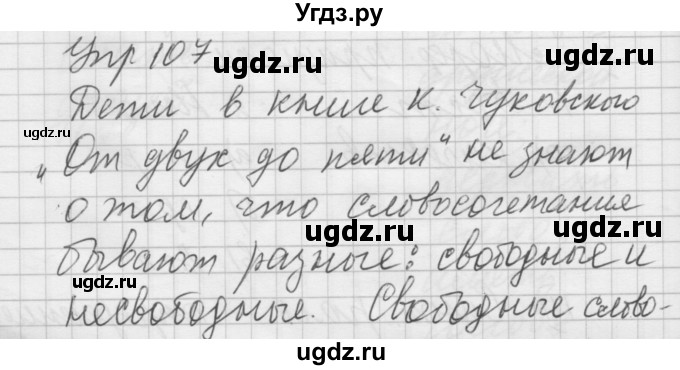 Угдз.ру
Упр 107
ugdz.ru
ugdz.ru
Дети в книге К. Чуковского
ugdz.ru
„От двух до пяти" не знают
ugdz.ru
о том, что словосочетания
ugdz.ru
ugdz.ru
бывают разные: свободные и
ugdz.ru
несвободные. Свободные слово-
ugdz.ru
ugdz.ru